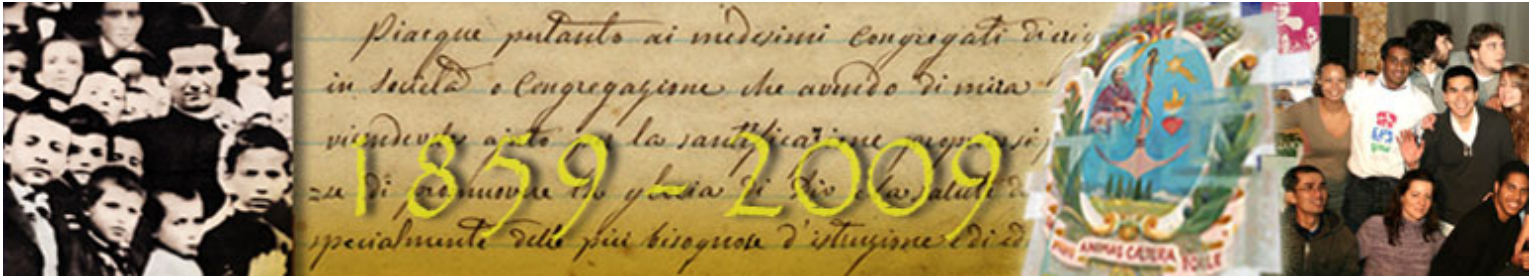 Piacque pertanto ai medesimi Congregati di
in Società o Congregazione che avendo di mira
vicendevole ajuto la santificazione propria si
=se di promuovere la gloria di Dio e la salute
specialmente delle più bisognose d'istruzione e di ed
1859 - 2009
ANIMAS CÆTERA TOLLE